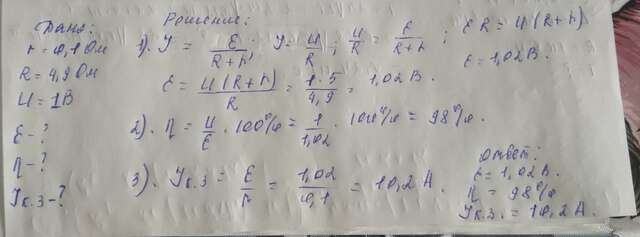 Дано:
r = 0,1 Ом
R = 4,9 Ом
U = 1В
ε - ?
η - ?
Iк.з - ?
Решение:
1). I = ε / (R + r); I = U / R; U / R = ε / (R + r); ε R = U (R + r)
ε = U (R + r) / R = 1 · 5 / 4,9 = 1,02 В. ε = 1,02 В.
2). η = U / ε · 100% = 1 / 1,02 · 100% = 98%.
3). Iк.з = ε / r = 1,02 / 0,1 = 10,2 А.
Ответ:
ε = 1,02 В.
η = 98%
Iк.з. = 10,2 А.